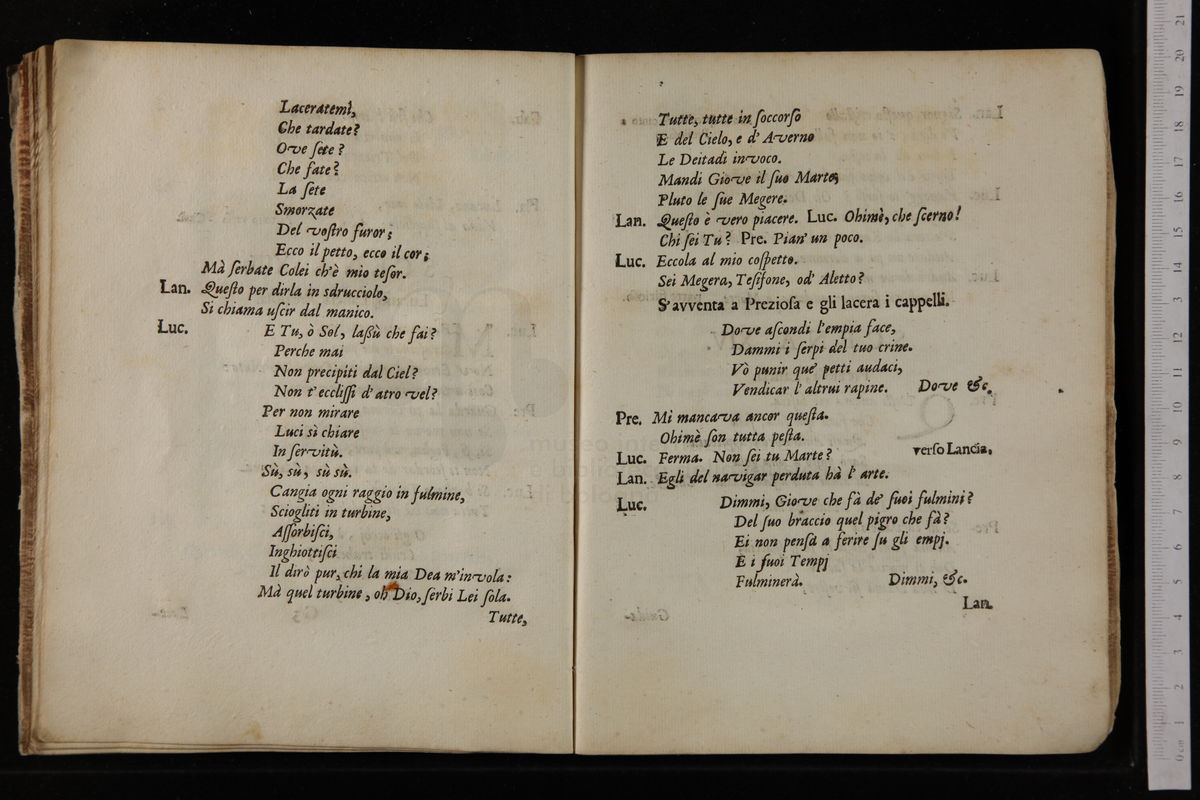 Laceratemi,
Che tardate?
Ove ſete?
Che fate?
La ſete
Smorzate
Del voſtro furor;
Ecco il petto, ecco il cor;
Mà ſerbate Colei ch'è mio teſor.
Lan. Queſto per dirla in sdrucciolo,
Si chiama uſcir dal manico.
Luc. E Tu, ò Sol, laſsù che fai?
Perche mai
Non precipiti dal Ciel?
Non t'eccliſſi d'atro vel?
Per non mirare
Luci sì chiare
In ſervitù.
Sù, sù, sù sù.
Cangia ogni raggio in fulmine,
Sciogliti in turbine,
Aſſorbiſci,
Inghiottiſci
Il dirò pur, chi la mia Dea m'invola:
Mà quel turbine, oh Dio, ſerbi Lei ſola.
Tutte,
Tutte, tutte in ſoccorſo
E del Cielo, e d'Averno
Le Deitadi invoco.
Mandi Giove il ſuo Marte,
Pluto le ſue Megere.
Lan. Queſto è vero piacere. Luc. Ohimè, che ſcerno!
Chi ſei Tu? Pre. Pian' un poco.
Luc. Eccola al mio coſpetto.
Sei Megera, Teſifone, od' Aletto?
S'avventa a Prezioſa e gli lacera i cappelli.
Dove aſcondi l'empia face,
Dammi i ſerpi del tuo crine.
Vò punir que' petti audaci,
Vendicar l'altrui rapine. Dove &c.
Pre. Mi mancava ancor queſta.
Ohimè ſon tutta peſta.
Luc. Ferma. Non ſei tu Marte? verſo Lancia.
Lan. Egli del navigar perduta hà l'arte.
Luc. Dimmi, Giove che fà de' ſuoi fulmini?
Del ſuo braccio quel pigro che fà?
Ei non penſa a ferire ſu gli empj.
E i ſuoi Tempj
Fulminerà. Dimmi, &c.
Lan.